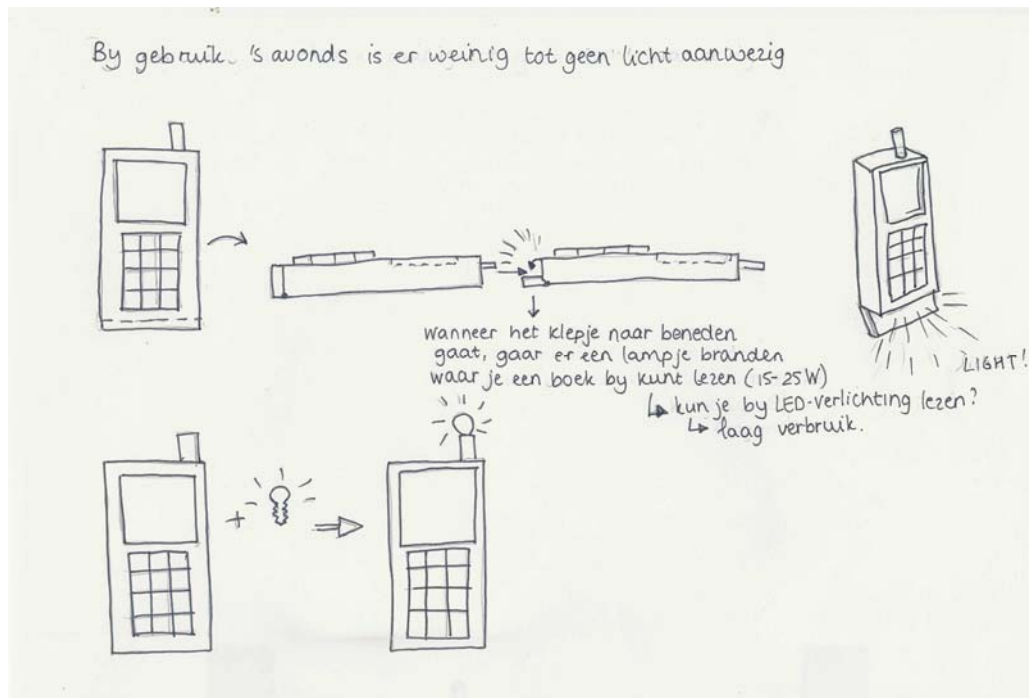 By gebruik 's avonds is er weinig tot geen licht aanwezig
wanneer het klepje naar beneden
gaat, gaar er een lampje branden
waar je een boek by kunt lezen (15-25W)
↳ kun je by LED-verlichting lezen?
↳ laag verbruik.
LIGHT!